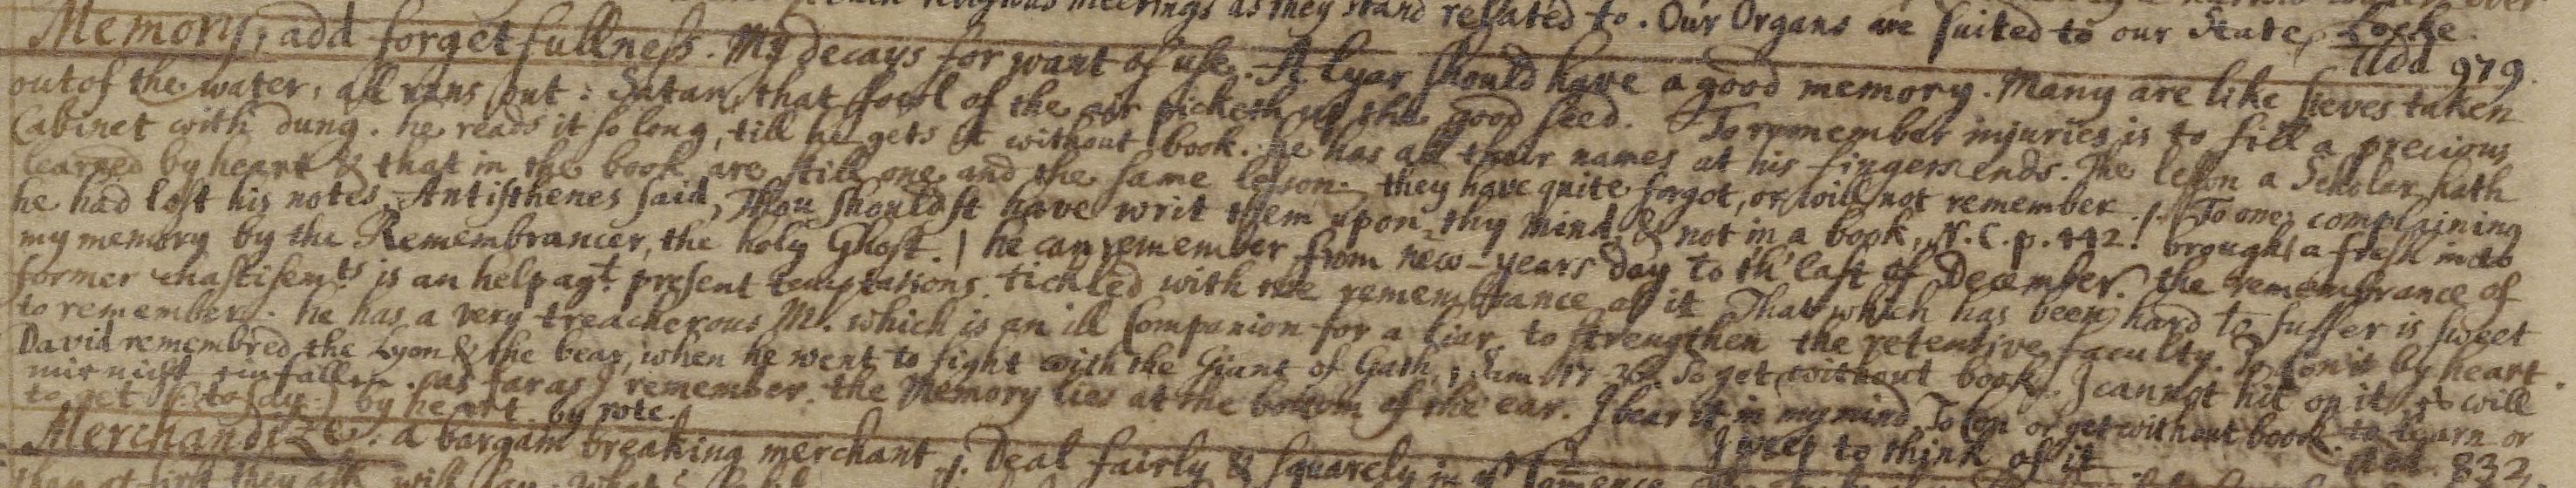 religious meetings as they stand related to. Our Organs are suited to our State, Locke.
Memory, add forgetfullness. My decays for want of use. A lyar should have a good memory. Many are like sieves taken
add 979.
out of the water, all runs out: Satan, that fowl of the air picketh up the good seed. To remember injuries is to fill a precious
Cabinet with dung. he reads it so long, till he gets it without book. he has all their names at his fingers ends. The lesson a Scholar hath
learned by heart & that in the book are still one and the same lesson. they have quite forgot, or will not remember. / To one, complaining
he had lost his notes, Antisthenes said, Thou shouldst have writ them upon thy mind, & not in a book, N.C.p.442! brought a fresh into
my memory by the Remembrancer, the holy Ghost. / he can remember from new-years day to th' last of December. the remembrance of
former chastisemts is an help agt present temptations. tickled with the remembrance of it. That which has been hard to suffer is sweet
to remember. he has a very treacherous M. which is an ill Companion for a liar. to strengthen the retentive faculty. To con it by heart.
David remembred the Lyon & the bear, when he went to fight with the Giant of Gath, 1 Sam 17 36. To get without book. I cannot hit on it, it will
as far as I remember. the Memory lies at the bottom of the ear. I bear it in my mind. To con or get without book. to learn or
to get (to say) by heart. by rote.
I weep to think of it
Merchandize. a bargain breaking merchant. Deal fairly & squarely in
Add. 832